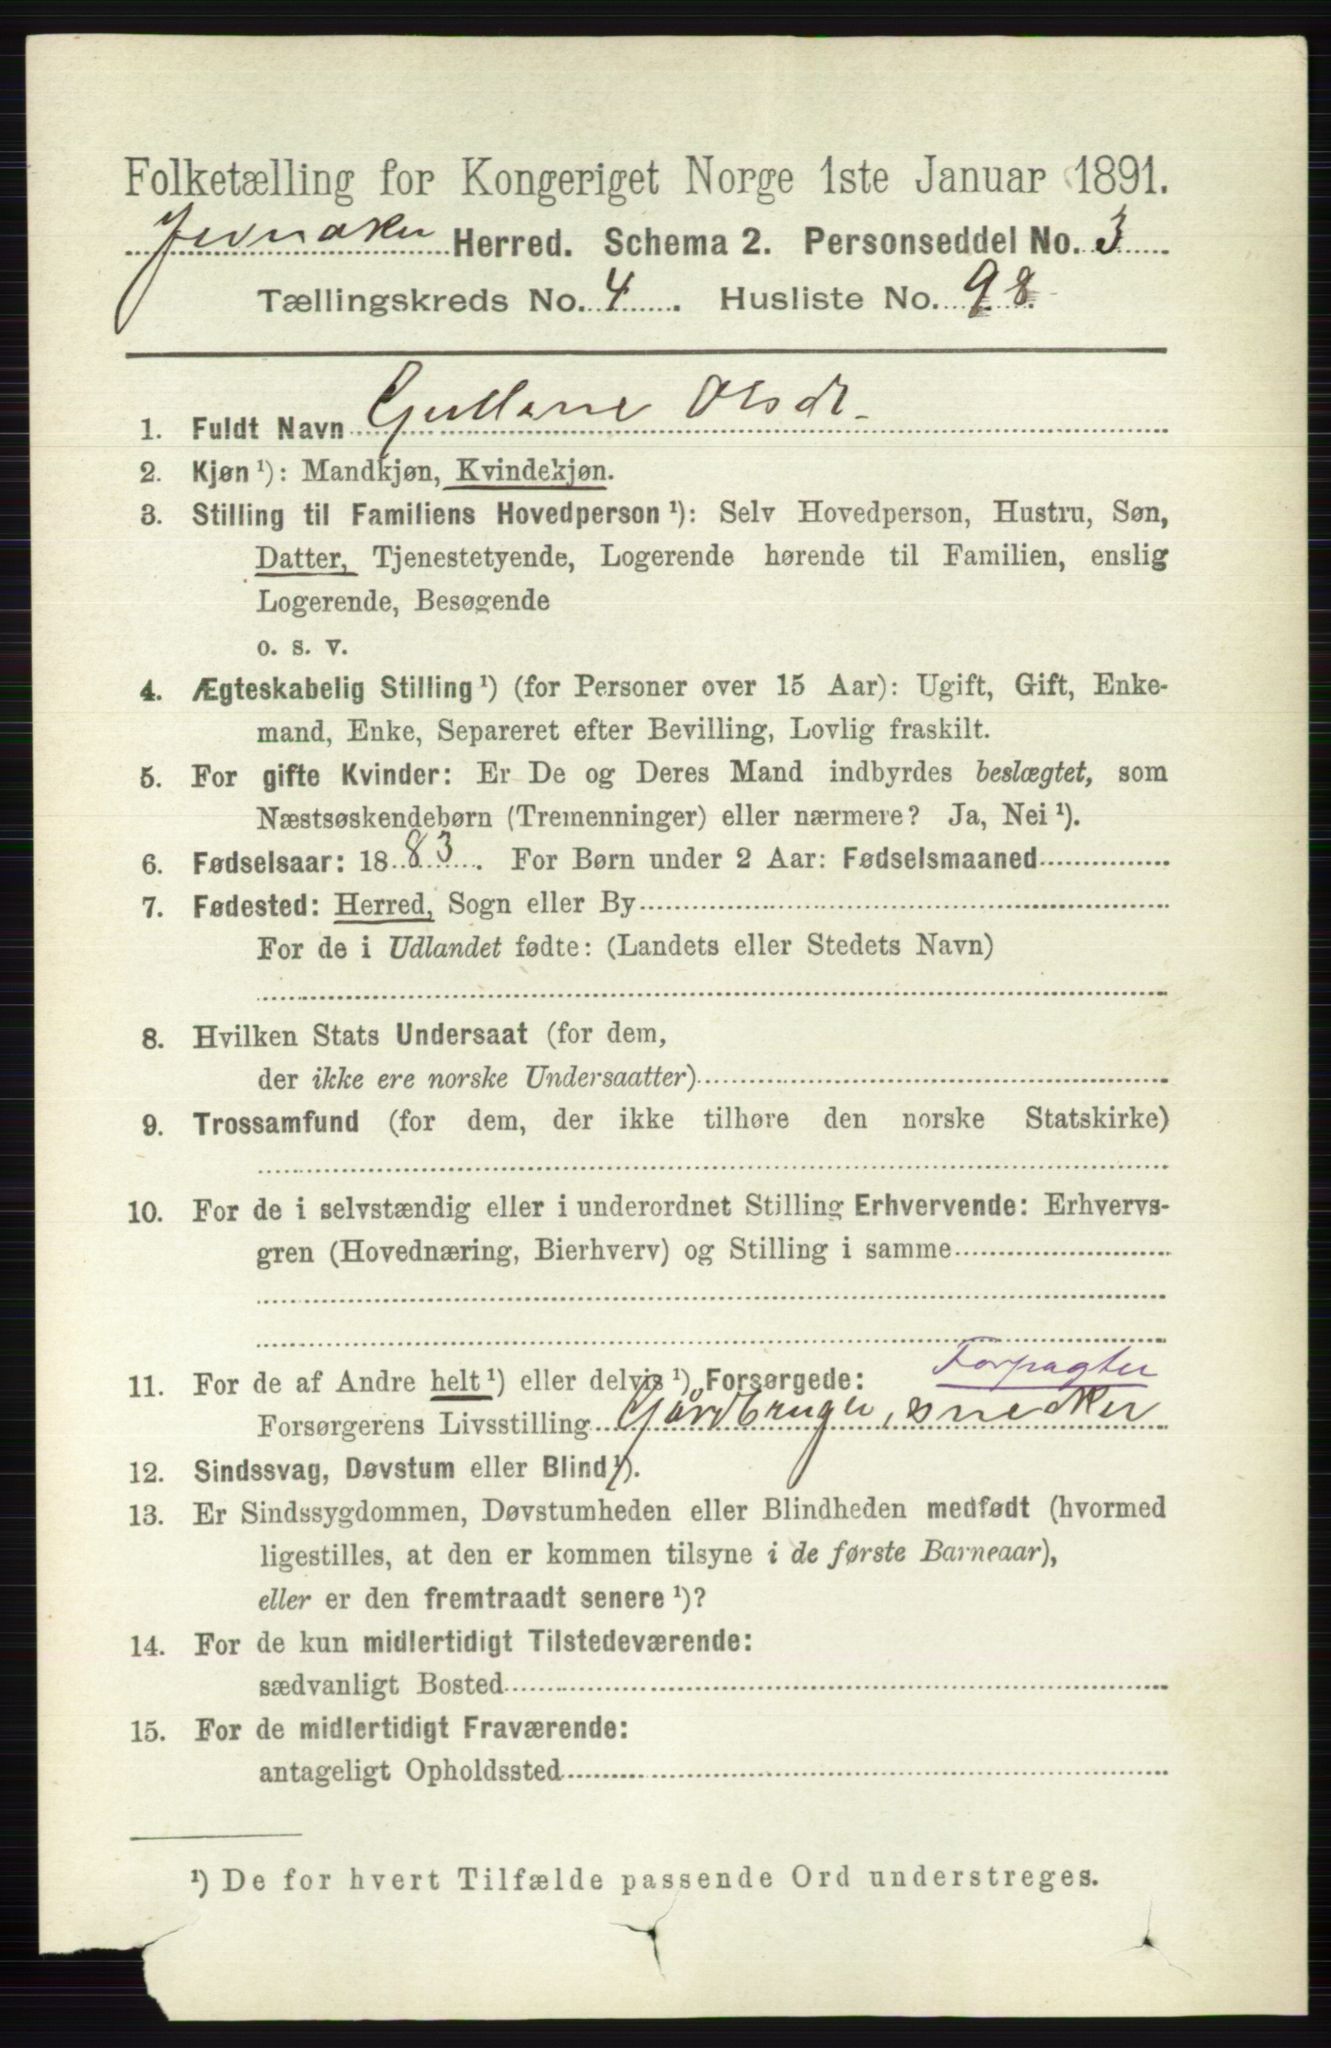 Folketælling for Kongeriget Norge 1ste Januar 1891.
Jevnaker Herred. Schema 2. Personseddel No. 3
Tællingskreds No. 4. Husliste No. 98.
1. Fuldt Navn Gullane Olsdt.
2. Kjøn ¹): Mandkjøn, Kvindekjøn.
3. Stilling til Familiens Hovedperson ¹): Selv Hovedperson, Hustru, Søn,
Datter, Tjenestetyende, Logerende hørende til Familien, enslig
Logerende, Besøgende
o. s. v.
4. Ægteskabelig Stilling ¹) (for Personer over 15 Aar): Ugift, Gift, Enke-
mand, Enke, Separeret efter Bevilling, Lovlig fraskilt.
5. For gifte Kvinder: Er De og Deres Mand indbyrdes beslægtet, som
Næstsøskendebørn (Tremenninger) eller nærmere? Ja, Nei ¹).
6. Fødselsaar: 1883. For Børn under 2 Aar: Fødselsmaaned
7. Fødested: Herred, Sogn eller By
For de i Udlandet fødte: (Landets eller Stedets Navn)
8. Hvilken Stats Undersaat (for dem,
der ikke ere norske Undersaatter)
9. Trossamfund (for dem, der ikke tilhøre den norske Statskirke)
10. For de i selvstændig eller i underordnet Stilling Erhvervende: Erhvervs-
gren (Hovednæring, Bierhverv) og Stilling i samme
Forpagter
11. For de af Andre helt ¹) eller delvis ¹) Forsørgede:
Forsørgerens Livsstilling Gårdbruger, snedker
12. Sindssvag, Døvstum eller Blind ¹).
13. Er Sindssygdommen, Døvstumheden eller Blindheden medfødt (hvormed
ligestilles, at den er kommen tilsyne i de første Barneaar),
eller er den fremtraadt senere ¹)?
14. For de kun midlertidigt Tilstedeværende:
sædvanligt Bosted
15. For de midlertidigt Fraværende:
antageligt Opholdssted
¹) De for hvert Tilfælde passende Ord understreges.